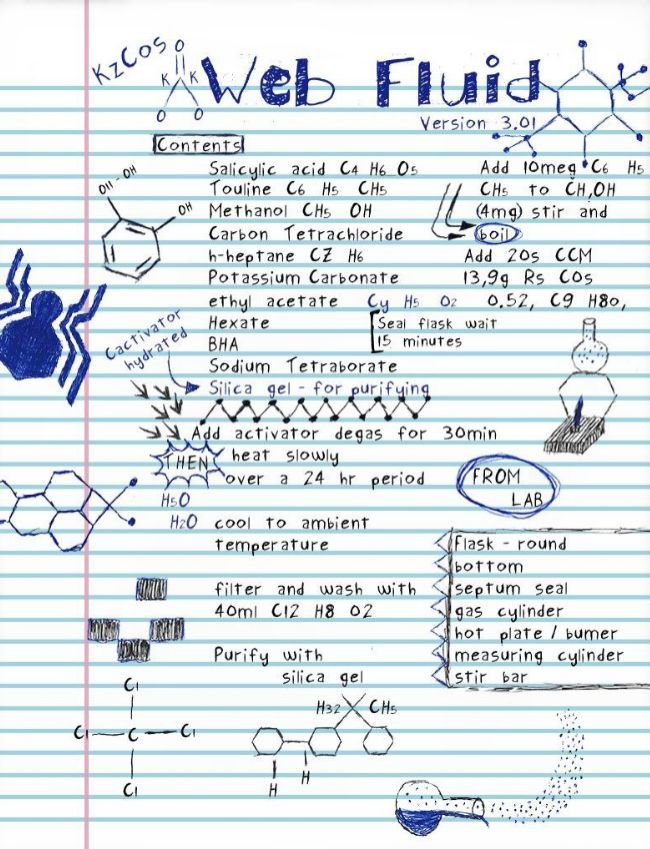 KzCos
O
K K
O O
Web Fluid
Version 3.01
Contents
Salicylic acid C4 H6 O5
Touline C6 H5 CH5
Methanol CH5 OH
Carbon Tetrachloride
h-heptane CZ H6
Potassium Carbonate
ethyl acetate Cy H5 O2
Hexate
BHA
Sodium Tetraborate
Silica gel - for purifying
Add 10meg C6 H5
CH5 to CH,OH
(4mg) stir and
boil
Add 20s CCM
13,9g Rs COs
0.52, C9 H80,
Seal flask wait
15 minutes
OH
Cactivator
hydrated
Add activator degas for 30min
THEN heat slowly
over a 24 hr period
H5O
H2O cool to ambient
temperature
filter and wash with
40ml C12 H8 O2
Purify with
silica gel
FROM
LAB
flask - round
bottom
septum seal
gas cylinder
hot plate / bumer
measuring cylinder
stir bar
Cl
Cl C Cl
Cl
H32 CH5
H
H